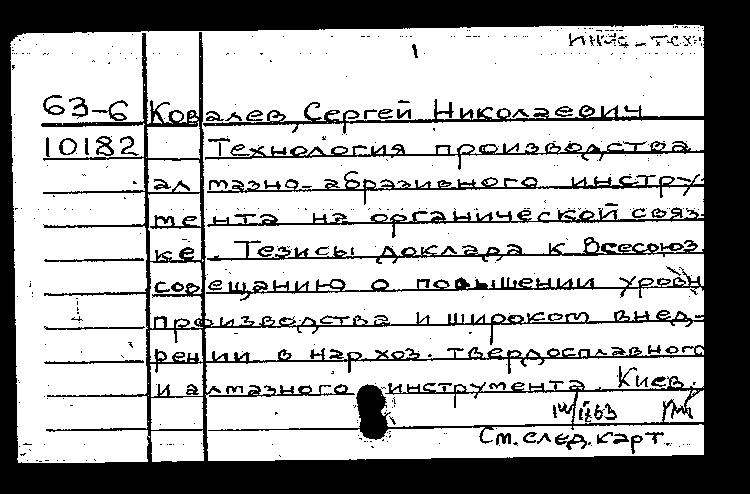 1
63-6 Ковалев, Сергей Николаевич
10182 Технология производства
алмазно-абразивного инстру-
мента на органической связ-
ке. Тезисы доклада к Всесоюз.
совещанию о повышении уровн
производства и широком внед-
рении в нар.хоз. твердосплавного
и алмазного инструмента. Киев.
См.след.карт.